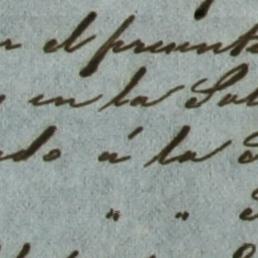 r el presente
en la Sal
ado á la S
" "